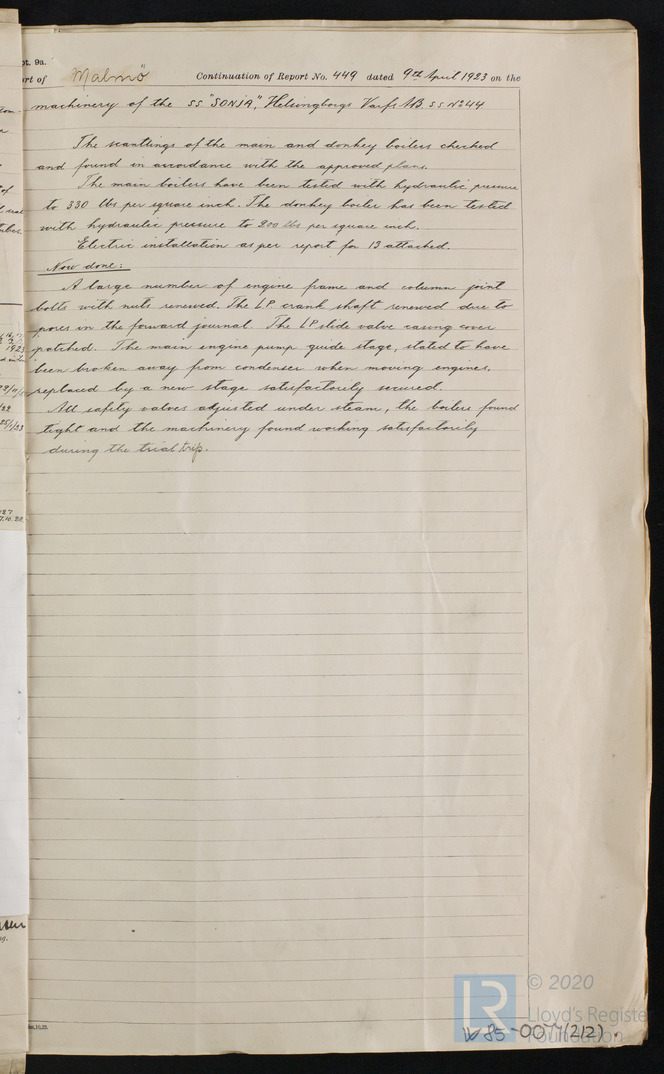 pt. 9a.
rt of Malmö Continuation of Report No. 449 dated 9th April 1923 on the
machinery of the SS "SONJA", Helsingborgs Varfs AB. SS No 44
The scantlings of the main and donkey boilers checked
and found in accordance with the approved plans.
The main boilers have been tested with hydraulic pressure
to 330 lbs per square inch. The donkey boiler has been tested
with hydraulic pressure to 200 lbs per square inch.
Electric installation as per report for 13 attached.
Now done:
A large number of engine frame and column joint
bolts with nuts renewed. The LP crank shaft renewed due to
pores in the forward journal. The LP slide valve casing cover
patched. The main engine pump guide stage, stated to have
been broken away from condenser when moving engines,
replaced by a new stage satisfactorily secured.
All safety valves adjusted under steam, the boilers found
tight and the machinery found working satisfactorily
during the trial trip.
© 2020
LR
Lloyd's Register
Foundation
W85-0077(2/2)